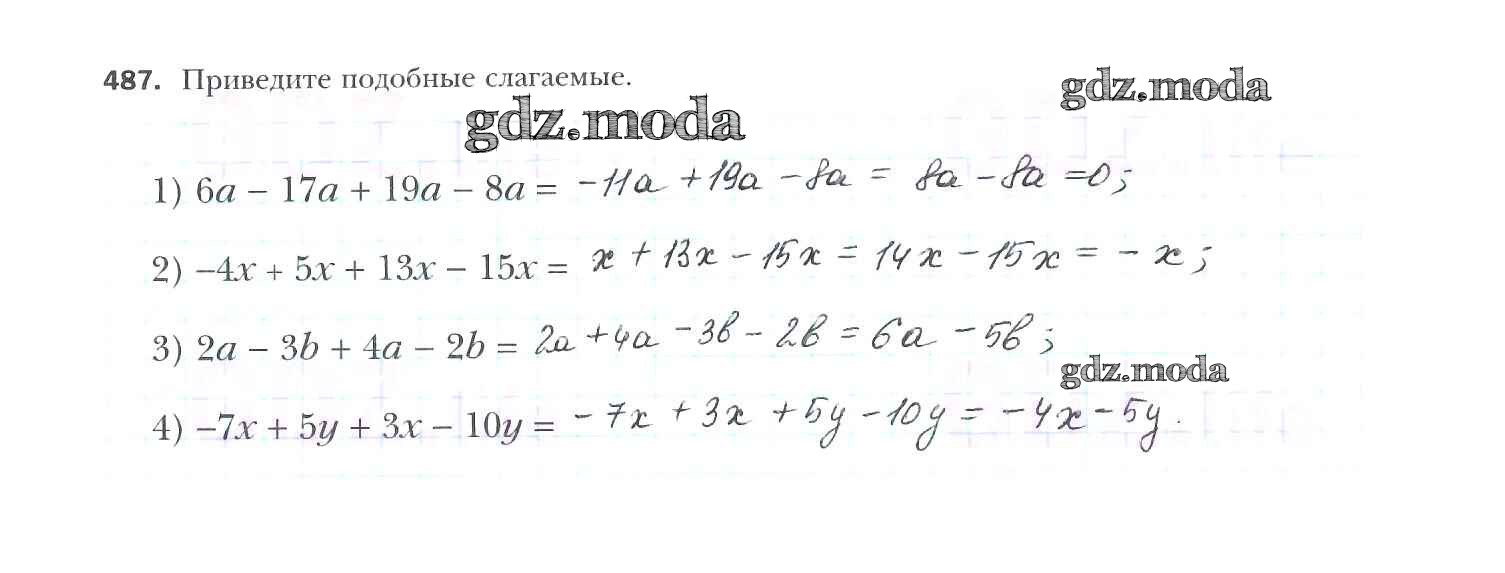 487. Приведите подобные слагаемые.
gdz.moda
gdz.moda
1) 6a − 17a + 19a − 8a = −11a + 19a − 8a = 8a − 8a = 0;
2) −4x + 5x + 13x − 15x = x + 13x − 15x = 14x − 15x = − x;
3) 2a − 3b + 4a − 2b = 2a + 4a − 3b − 2b = 6a − 5b;
gdz.moda
4) −7x + 5y + 3x − 10y = − 7x + 3x + 5y − 10y = − 4x − 5y.